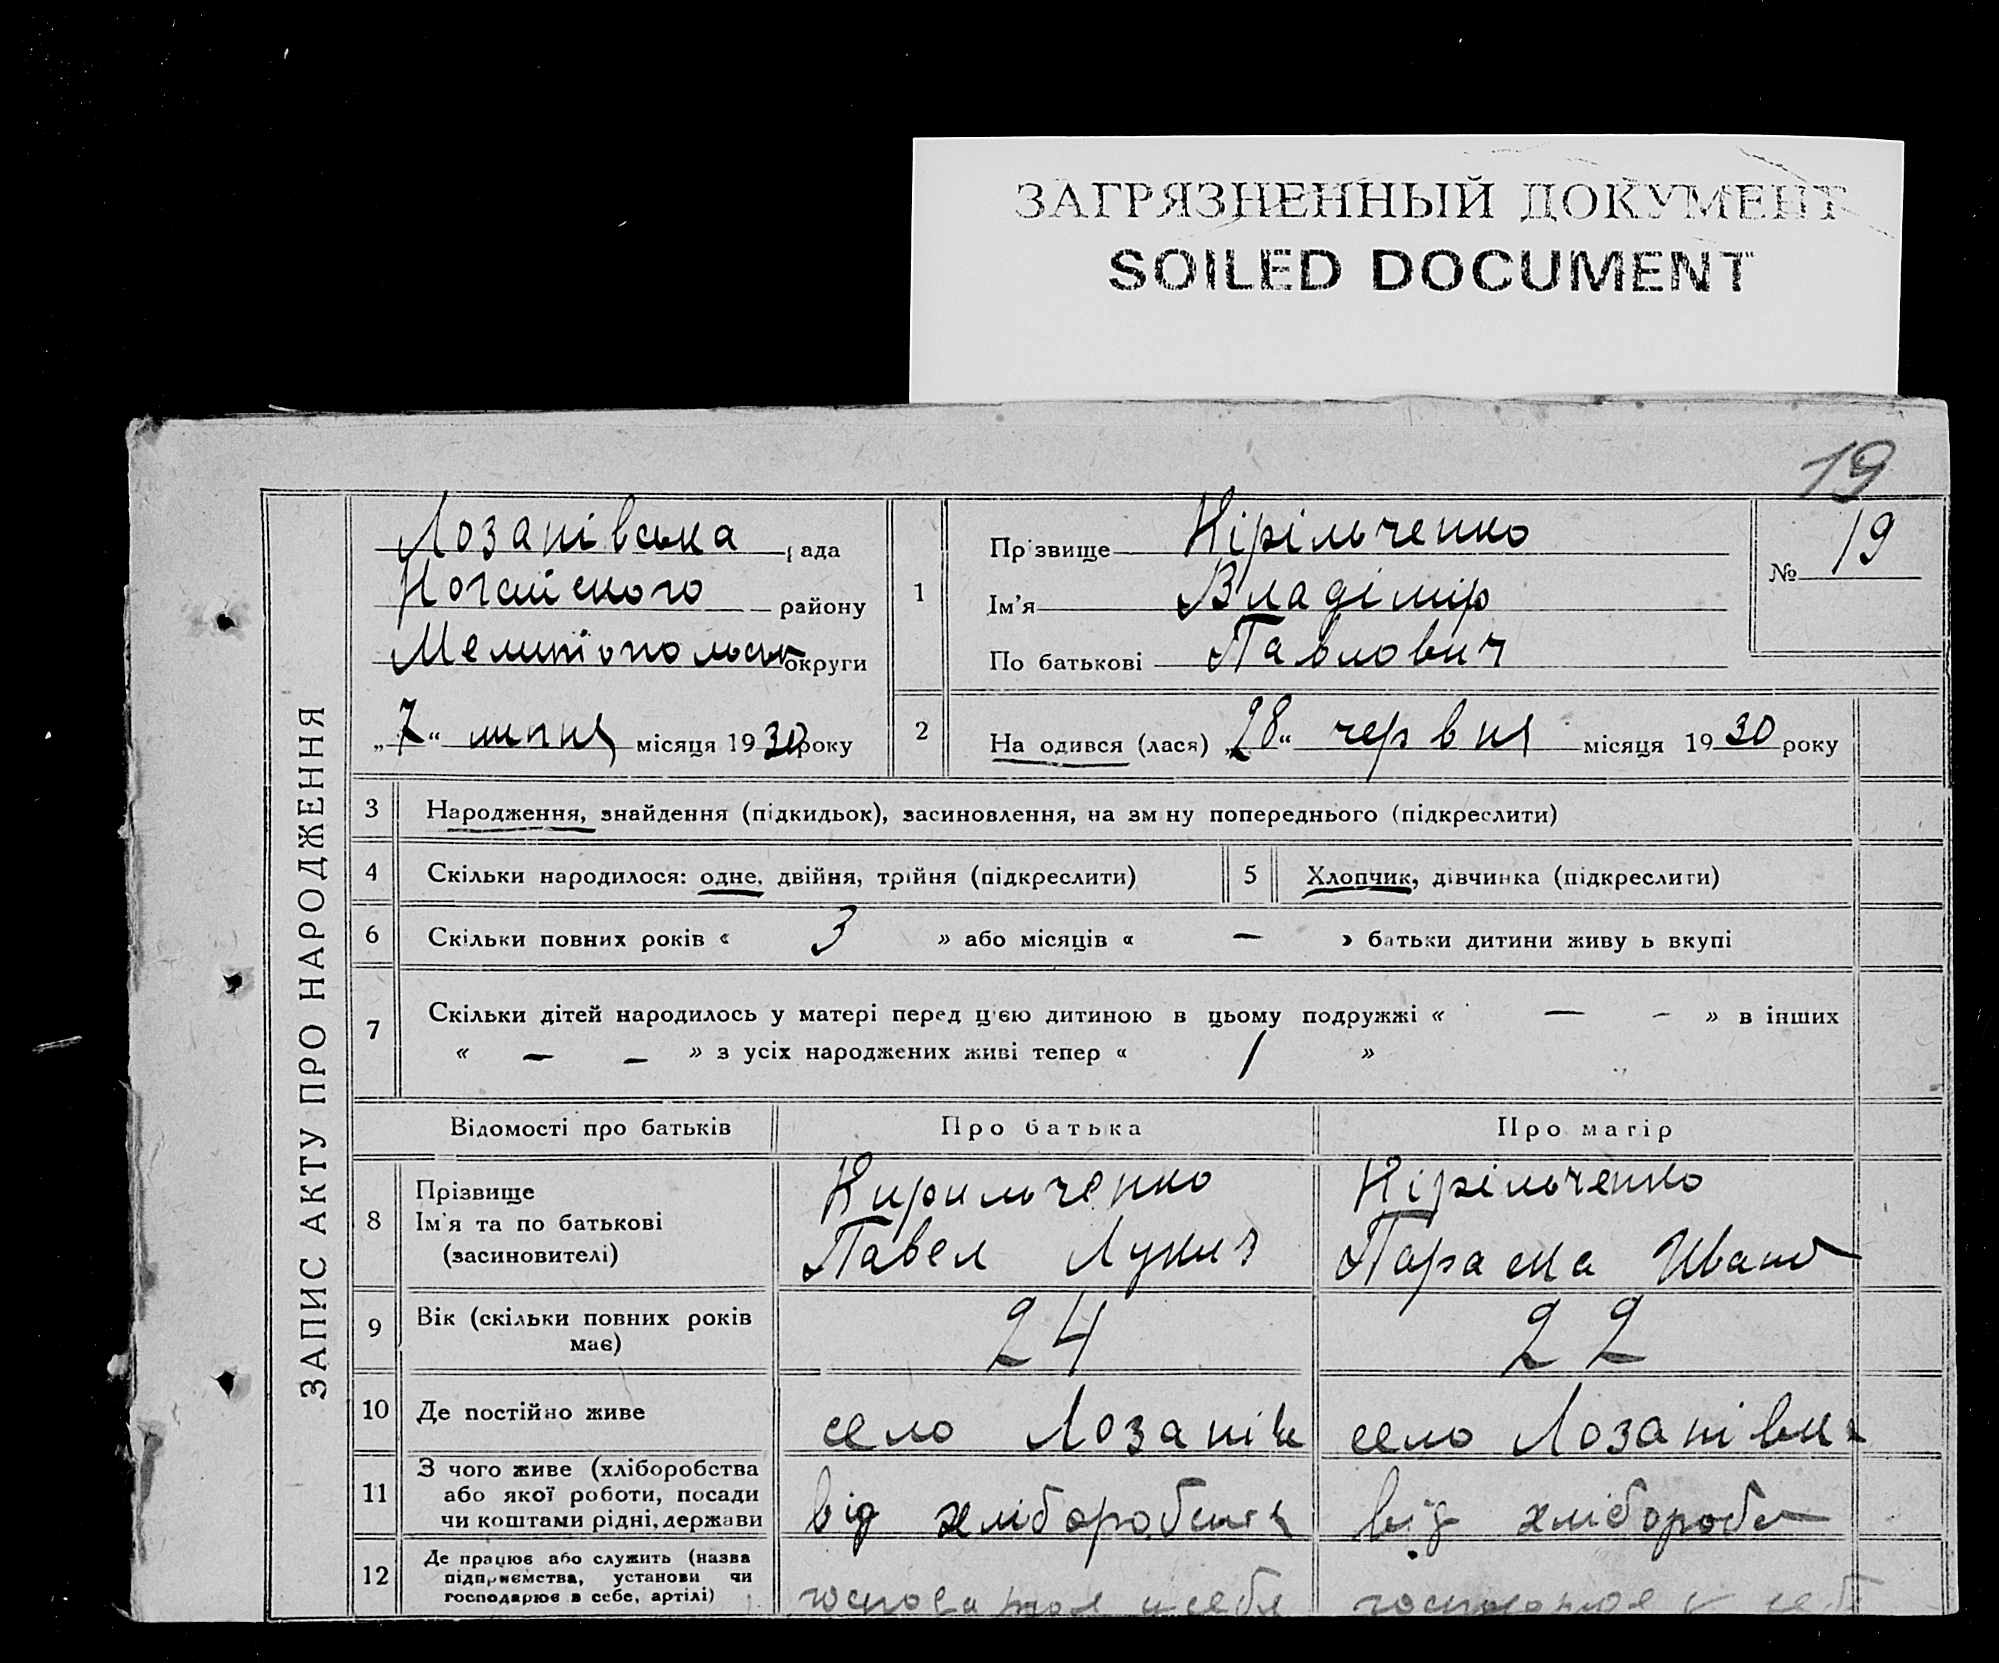 ЗАГРЯЗНЕННЫЙ ДОКУМЕНТ
SOILED DOCUMENT
19
ЗАПИС АКТУ ПРО НАРОДЖЕННЯ
Лозанівська рада
Ногайського району
Мелитіпольськ округи
„7“ липня місяця 1930 року
1
Прізвище Кірільченко
Ім'я Владімір
По батькові Павлович
№ 19
2
На одився (лася) „28“ червня місяця 1930 року
3 Народження, знайдення (підкидьок), засиновлення, на зм ну попереднього (підкреслити)
4 Скільки народилося: одне, двійня, трійня (підкреслити)
5 Хлопчик, дівчинка (підкреслити)
6 Скільки повних років « 3 » або місяців « — » батьки дитини живу ь вкупі
7 Скільки дітей народилось у матері перед ц'єю дитиною в цьому подружжі « — - » в інших
« — — » з усіх народжених живі тепер « 1 »
Відомості про батьків Про батька Про матір
8 Прізвище
Ім'я та по батькові
(засиновителі)
Кирильченко
Павел Лукич
Кірільченко
Параска Іван
9 Вік (скільки повних років
має)
24 22
10 Де постійно живе село Лозанівк село Лозанівки
11 З чого живе (хліборобства
або якої роботи, посади
чи коштами рідні, держави
від хліборобств від хлібороб
12 Де працює або служить (назва
підприємства, установи чи
господарює в себе, артілі)